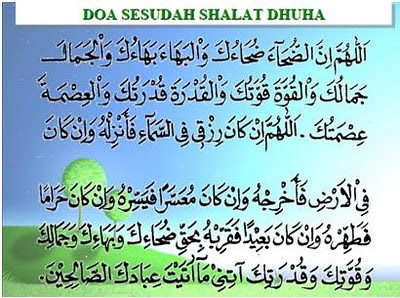 DOA SESUDAH SHALAT DHUHA
اَللّٰهُمَّ اِنَّ الضُّحَآءَ ضُحَاءُكَ وَالْبَهَاءَ بَهَاءُكَ وَالْجَمَالَ
جَمَالُكَ وَالْقُوَّةَ قُوَّتُكَ وَالْقُدْرَةَ قُدْرَتُكَ وَالْعِصْمَةَ
عِصْمَتُكَ . اَللّٰهُمَّ اِنْ كَانَ رِزْقِى فِى السَّمَآءِ فَأَنْزِلْهُ وَاِنْ كَانَ
فِى اْلاَرْضِ فَأَخْرِجْهُ وَاِنْ كَانَ مُعَسَّرًا فَيَسِّرْهُ وَاِنْ كَانَ حَرَامًا
فَطَهِّرْهُ وَاِنْ كَانَ بَعِيْدًا فَقَرِّبْهُ بِحَقِّ ضُحَاءِكَ وَبَهَاءِكَ وَجَمَالِكَ
وَقُوَّتِكَ وَقُدْرَتِكَ آتِنِىْ مَآ اَتَيْتَ عِبَادَكَ الصَّالِحِيْنَ .